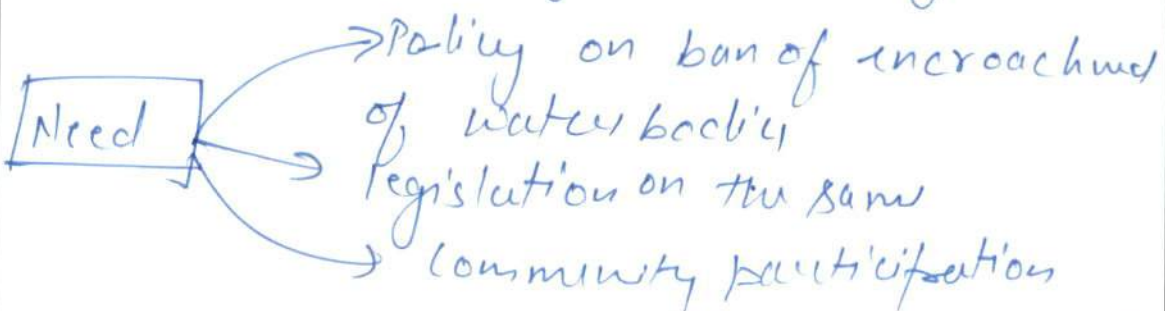 Policy on ban of encroachmed
Need
of waterbodies
legislation on the same
Community participation